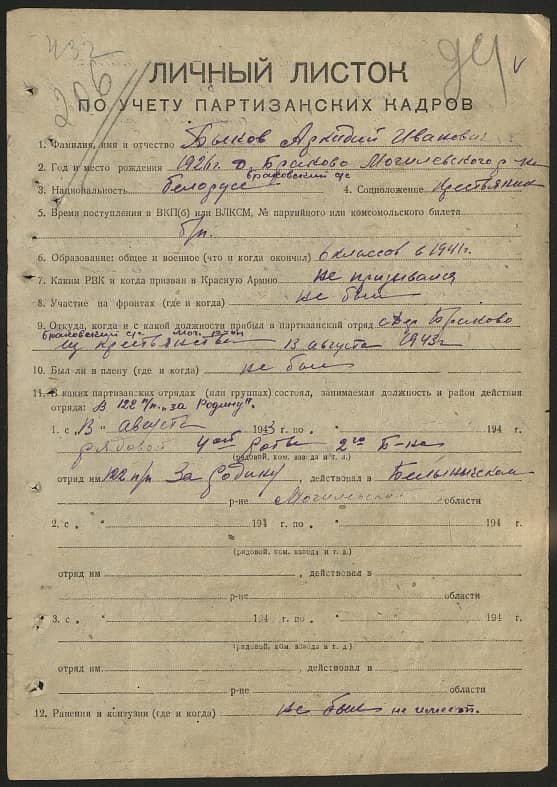 432
206
94 v
ЛИЧНЫЙ ЛИСТОК
ПО УЧЕТУ ПАРТИЗАНСКИХ КАДРОВ
1. Фамилия, имя и отчество Быков Аркадий Иванович
2. Год и место рождения 1926г. д. Браково Могилевского р-на
Браковский с/с
3. Национальность белорус 4. Соцположение Крестьянин
5. Время поступления в ВКП(б) или ВЛКСМ, № партийного или комсомольского билета
б/п.
6. Образование: общее и военное (что и когда окончил) 6 классов в 1941г.
7. Каким РВК и когда призван в Красную Армию не призывался
8. Участие на фронтах (где и когда) не был
9. Откуда, когда и с какой должности прибыл в партизанский отряд с дер Браково
Браковский с/с Мог. р-на
из крестьянства 13 августа 1943г.
10. Был-ли в плену (где и когда) не был
11. В каких партизанских отрядах (или группах) состоял, занимаемая должность и район действия
отряда: В 122 п/п. „за Родину".
1. с „13" августа 1943 г. по „ " 194 г.
рядовой 4ой роты 2го б-на
(рядовой, ком. взвода и т. д.)
отряд им 122 п/п За Родину, действовал в Белыничском
р-не Могилевской области
2. с „ " 194 г. по „ " 194 г.
(рядовой, ком. взвода и т. д.)
отряд им , действовал в
р-не области
3. с „ " 194 г. по „ " 194 г.
(рядовой, ком. взвода и т. д.)
отряд им , действовал в
р-не области
12. Ранения и контузии (где и когда) не был не имеет.